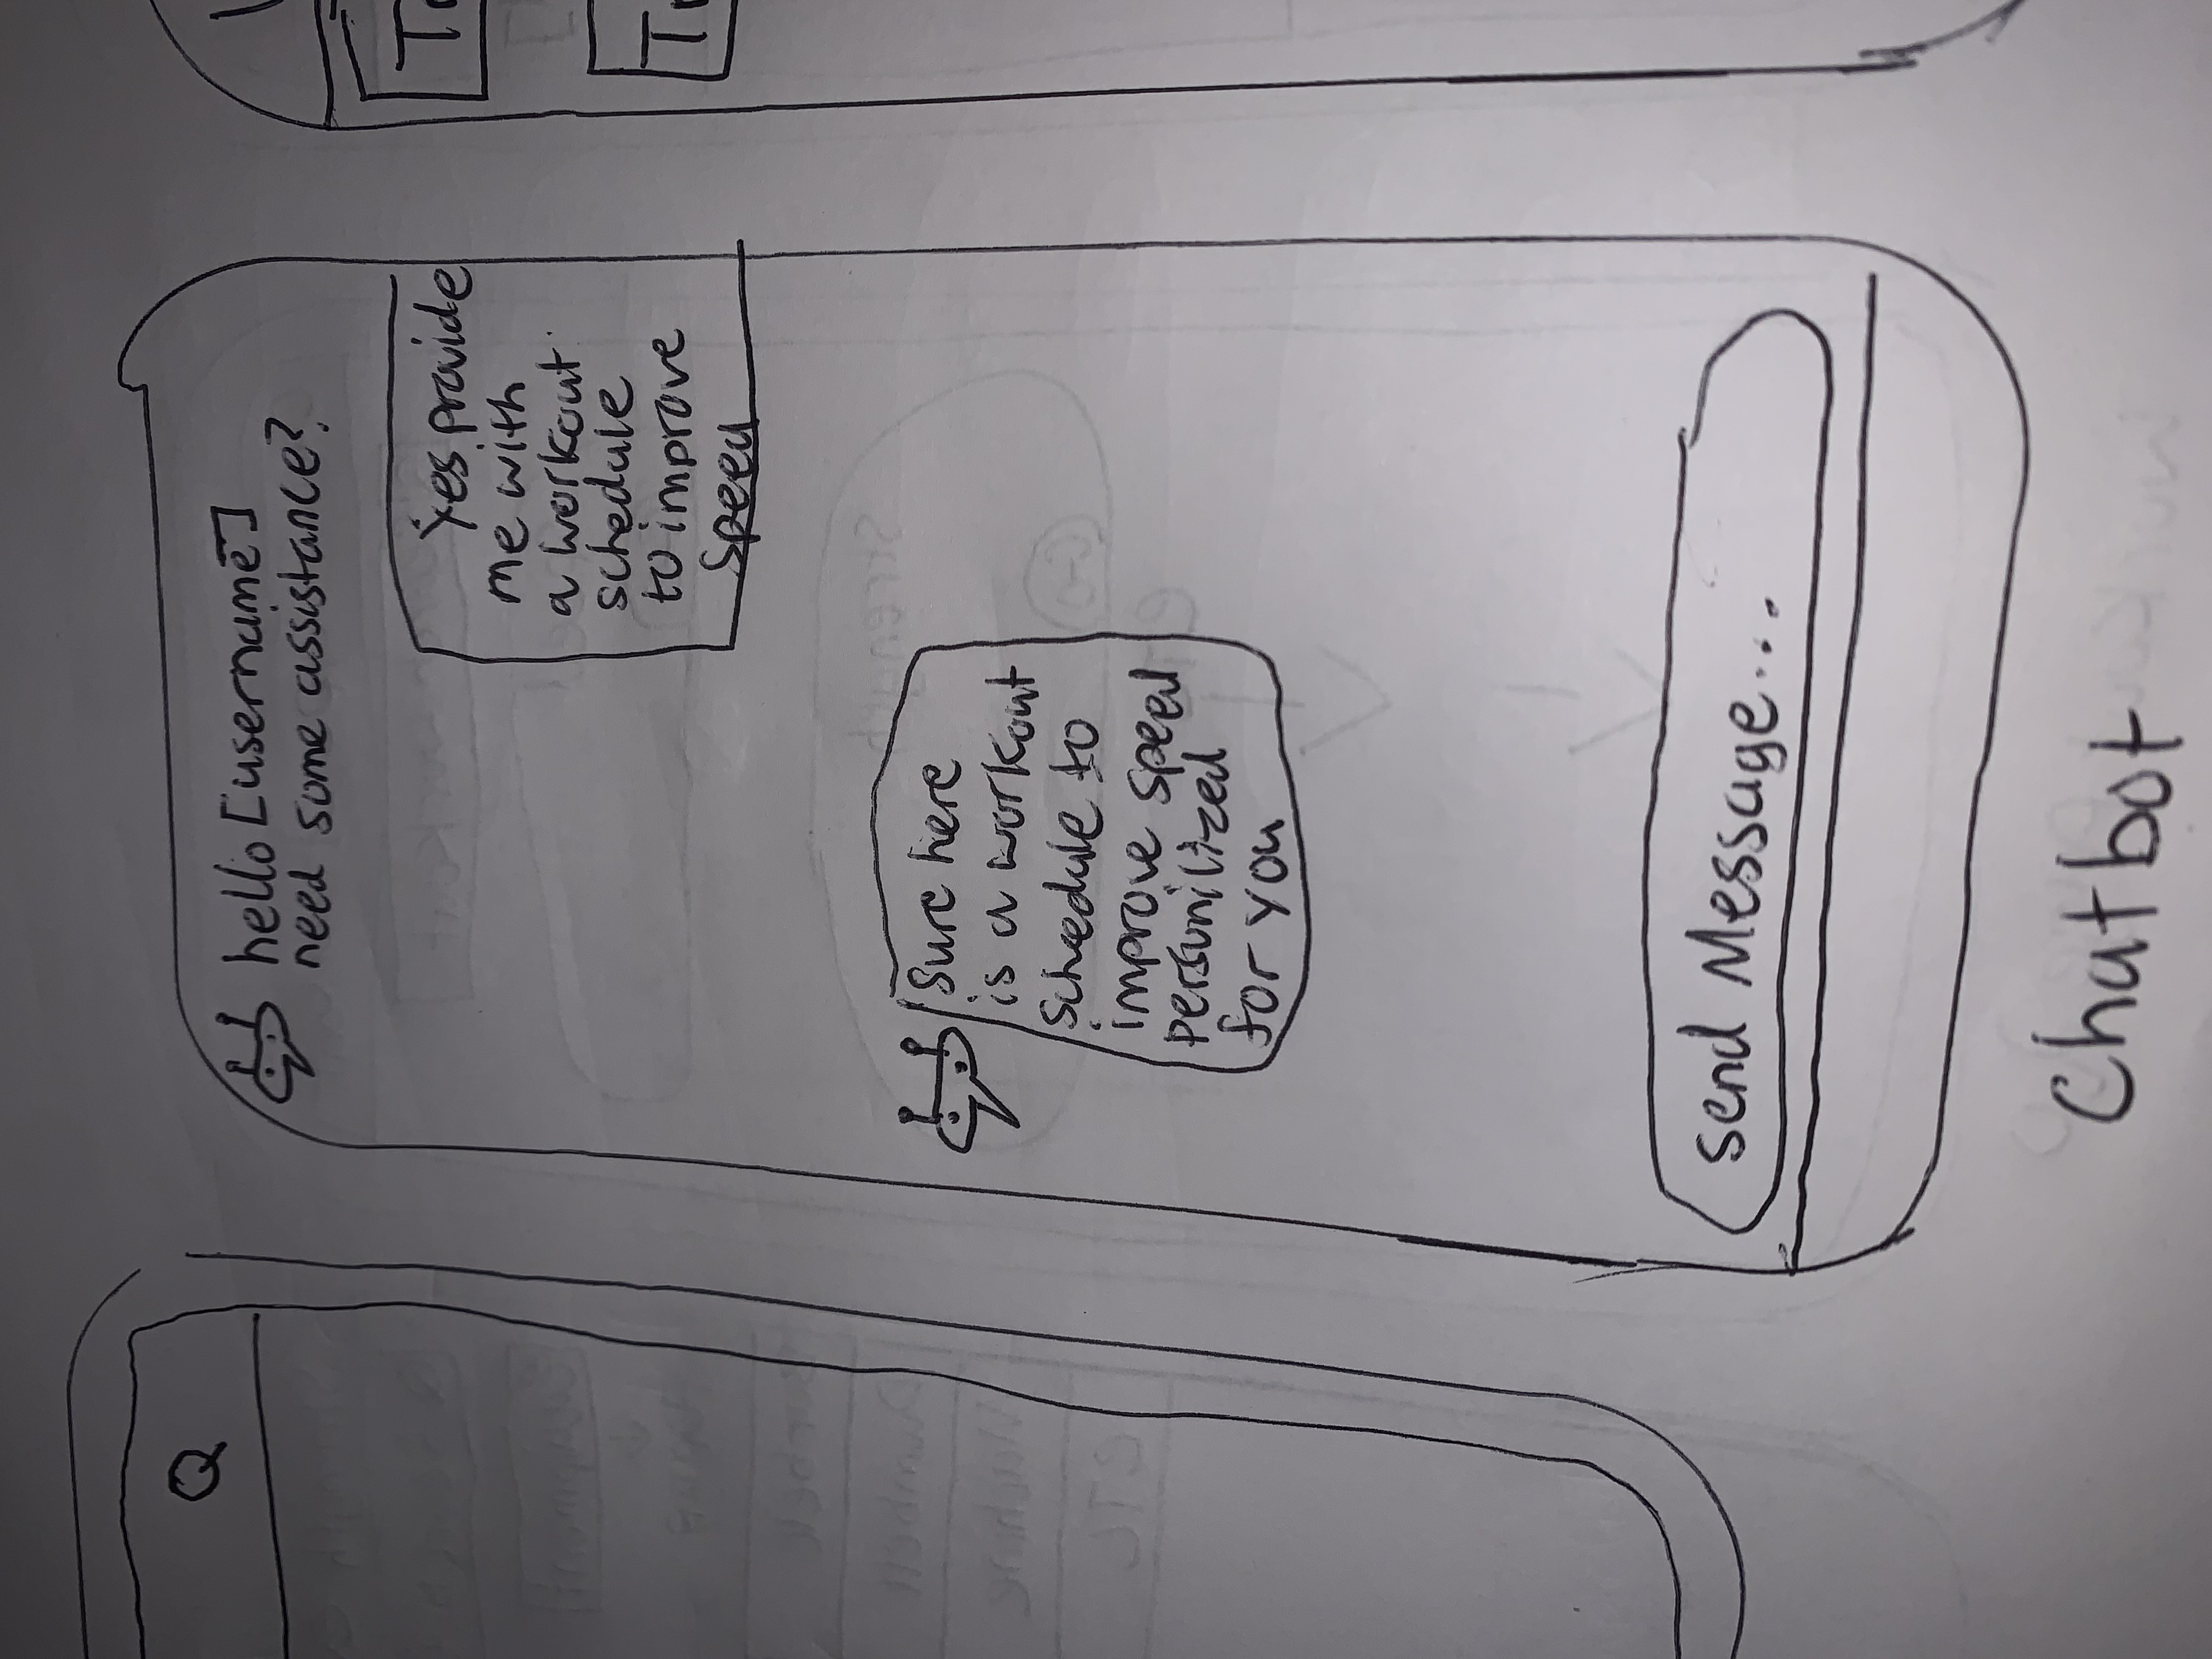 hello [username]
need some assistance?
Yes provide
me with
a workout
schedule
to improve
speed
Sure here
is a workout
schedule to
improve speed
persunilized
for you
Send Message...
Chatbot